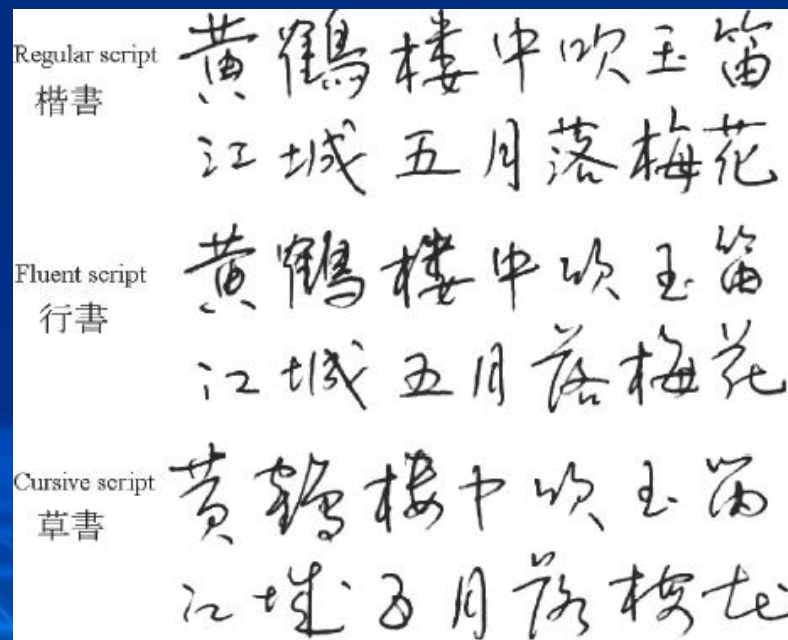 Regular script
楷書
黄鶴楼中吹玉笛
江城五月落梅花
Fluent script
行書
黄鶴楼中吹玉笛
江城五月落梅花
Cursive script
草書
黄鶴楼中吹玉笛
江城五月落梅花